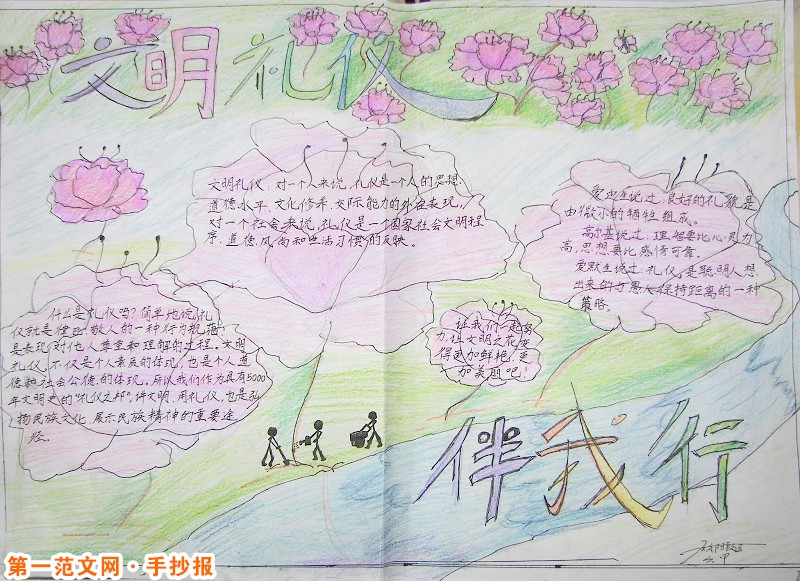 文明礼仪
文明礼仪，对一个人来说，礼仪是一个人的思想
道德水平，文化修养，交际能力的外在表现，
对一个社会来说，礼仪是一个国家社会文明程
序，道德风尚和生活习惯的反映。
爱默生说过：良好的礼貌是
由微小的牺牲组成。
高尔基说过：理智要比心灵为
高，思想要比感情可靠。
爱默生说过：礼仪，是聪明人想
出来的与愚人保持距离的一种
策略。
什么是礼仪吗？简单地说，礼
仪就是律己、敬人的一种行为规范，
是表现对他人尊重和理解的过程。文明
礼仪，不仅是个人素质的体现，也是个人道
德和社会公德的体现，所以我们作为具有5000
年文明史的“礼仪之邦”，讲文明，用礼仪，也是弘
扬民族文化，展示民族精神的重要途
径。
让我们一起努
力，让文明之花变
得更加鲜艳，更
加美丽吧！
伴我行
第一范文网·手抄报